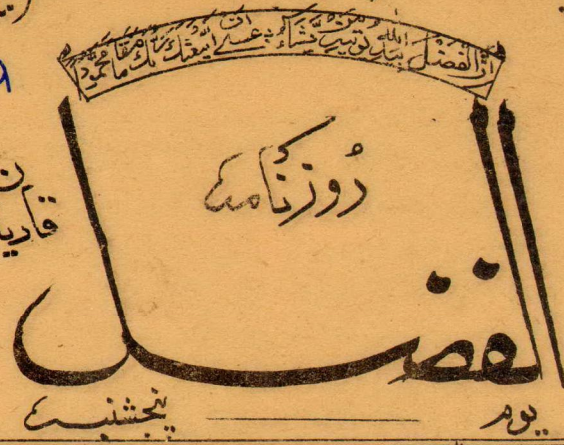 ان الفضل بید اللہ یوتیہ من یشاء عسیٰ ان یبعثک ربک مقاما محمودا
روزنامہ
الفضل
قادیا
یوم پنجشنبہ